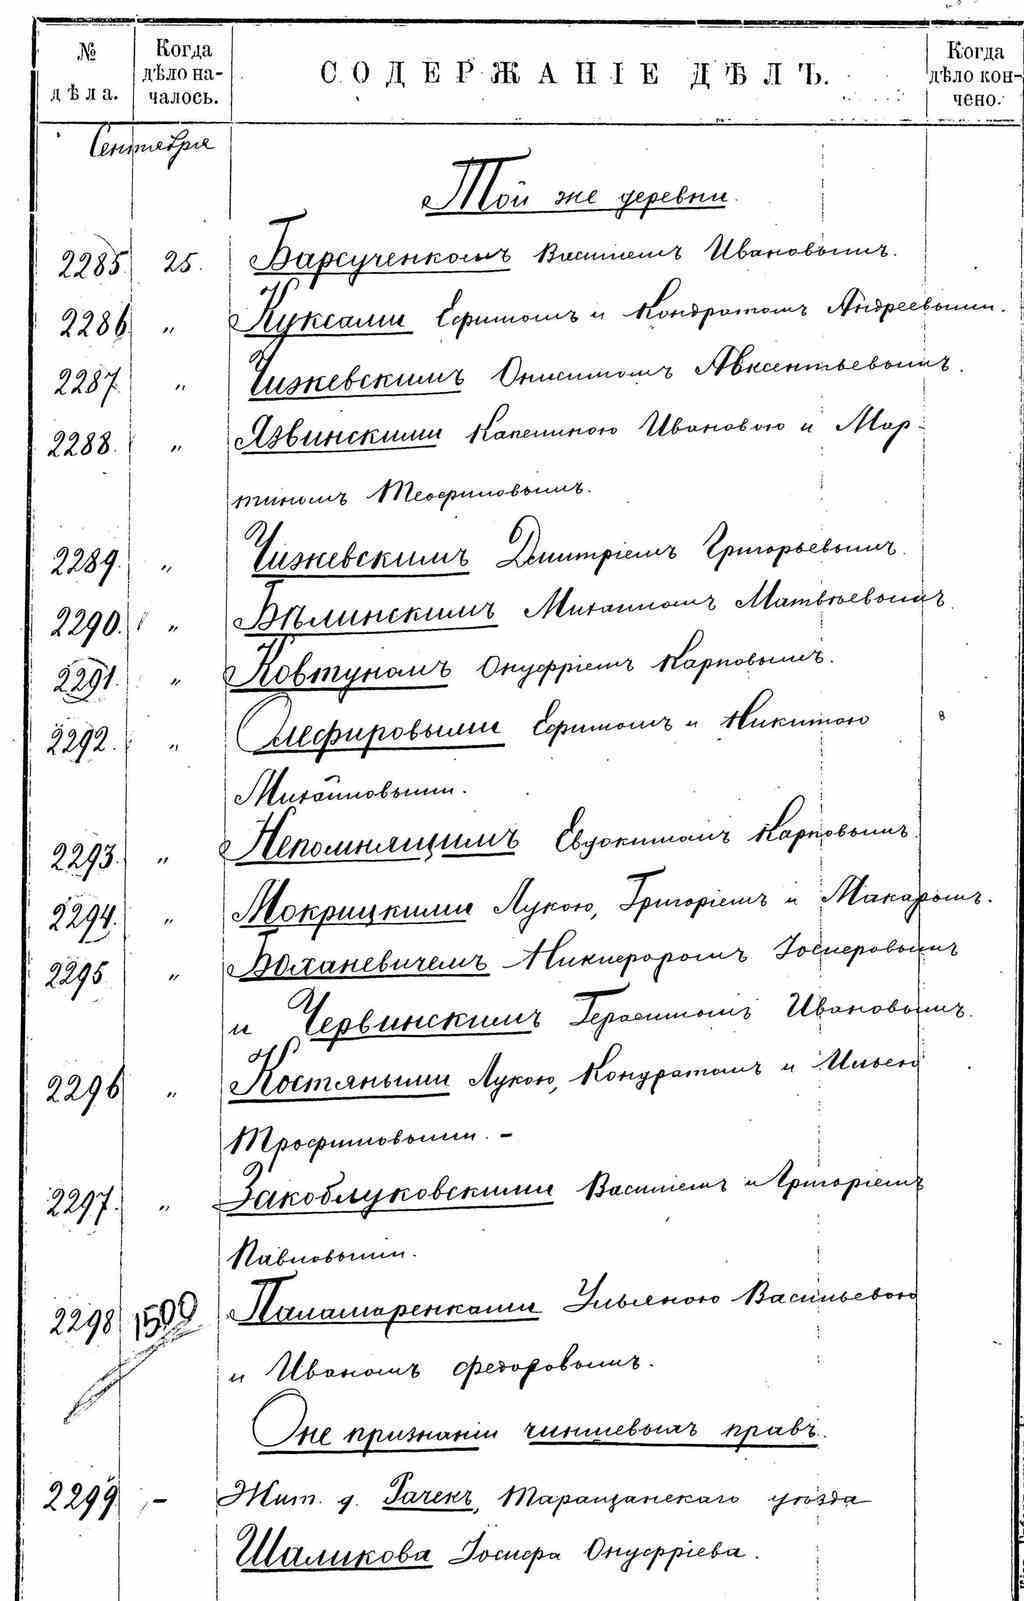 № дѣла. Когда дѣло началось. СОДЕРЖАНІЕ ДѢЛЪ. Когда дѣло кончено.
Сентября
Той же деревни.
2285 25. Барсученкомъ Василіемъ Ивановымъ.
2286 „ Куксами Ефимомъ и Кондратомъ Андреевыми.
2287 „ Чижевскимъ Онисимомъ Авксентьевымъ.
2288. „ Язвинскими Капелиною Ивановою и Мар-
тиномъ Теофиловымъ.
2289. „ Чижевскимъ Дмитріемъ Григорьевымъ.
2290. „ Бѣлинскимъ Михаиломъ Матвѣевымъ.
2291. „ Ковтуномъ Онуфріемъ Карповымъ.
2292. „ Олефировыми Ефимомъ и Никитою
Михайловыми.
2293. „ Непомнящимъ Евдокимомъ Карповымъ.
2294. „ Мокрицкими Лукою, Григоріемъ и Макаромъ.
2295 „ Боханевичемъ Никифоромъ Іосифовымъ
и Червинскимъ Герасимомъ Ивановымъ.
2296 „ Костяными Лукою, Кондратомъ и Ильею
Трофимовыми. –
2297. „ Закоблуковскими Василіемъ и Григоріемъ
Павловыми.
2298 1500 Паламаренками Ульяною Васильевою
и Иваномъ Федоровымъ.
О не признаніи чиншевыхъ правъ.
2299 – Жит. д. Гачекъ, Таращанскаго уѣзда
Шаликова Іосифа Онуфріева.